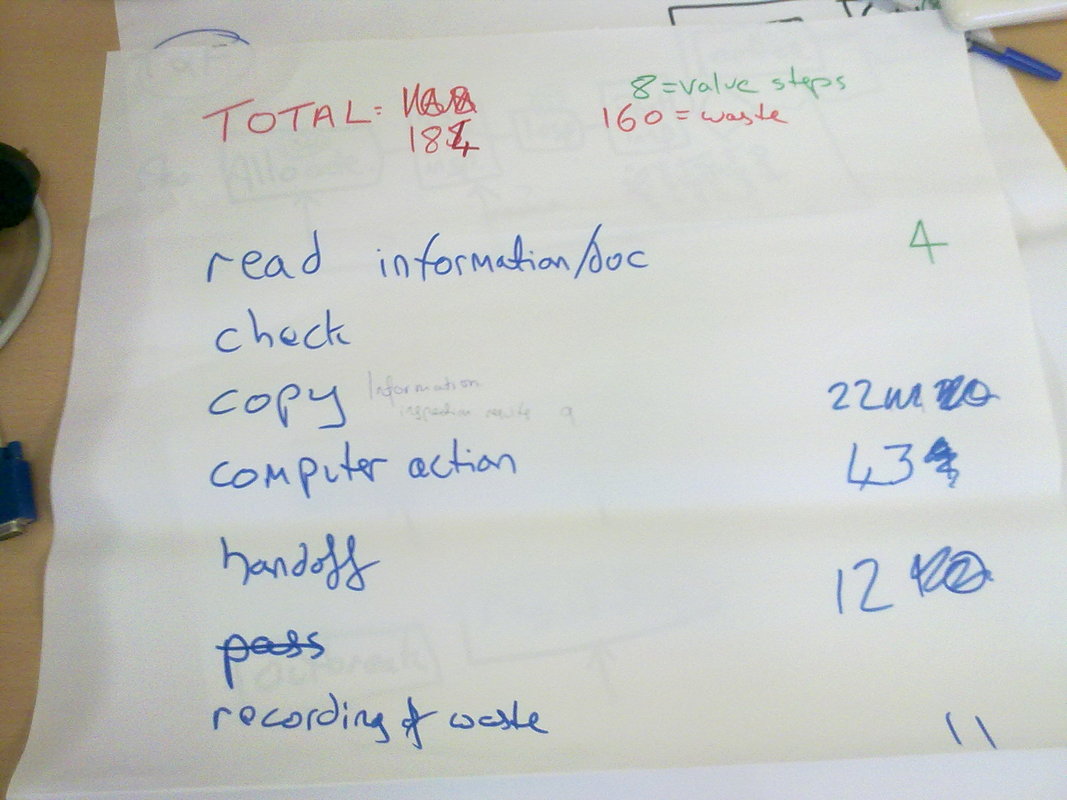 8 = value steps
TOTAL: 184
160 = waste
read information/doc 4
check
copy Information 22
computer action 43
handoff 12
pass
recording of waste 11